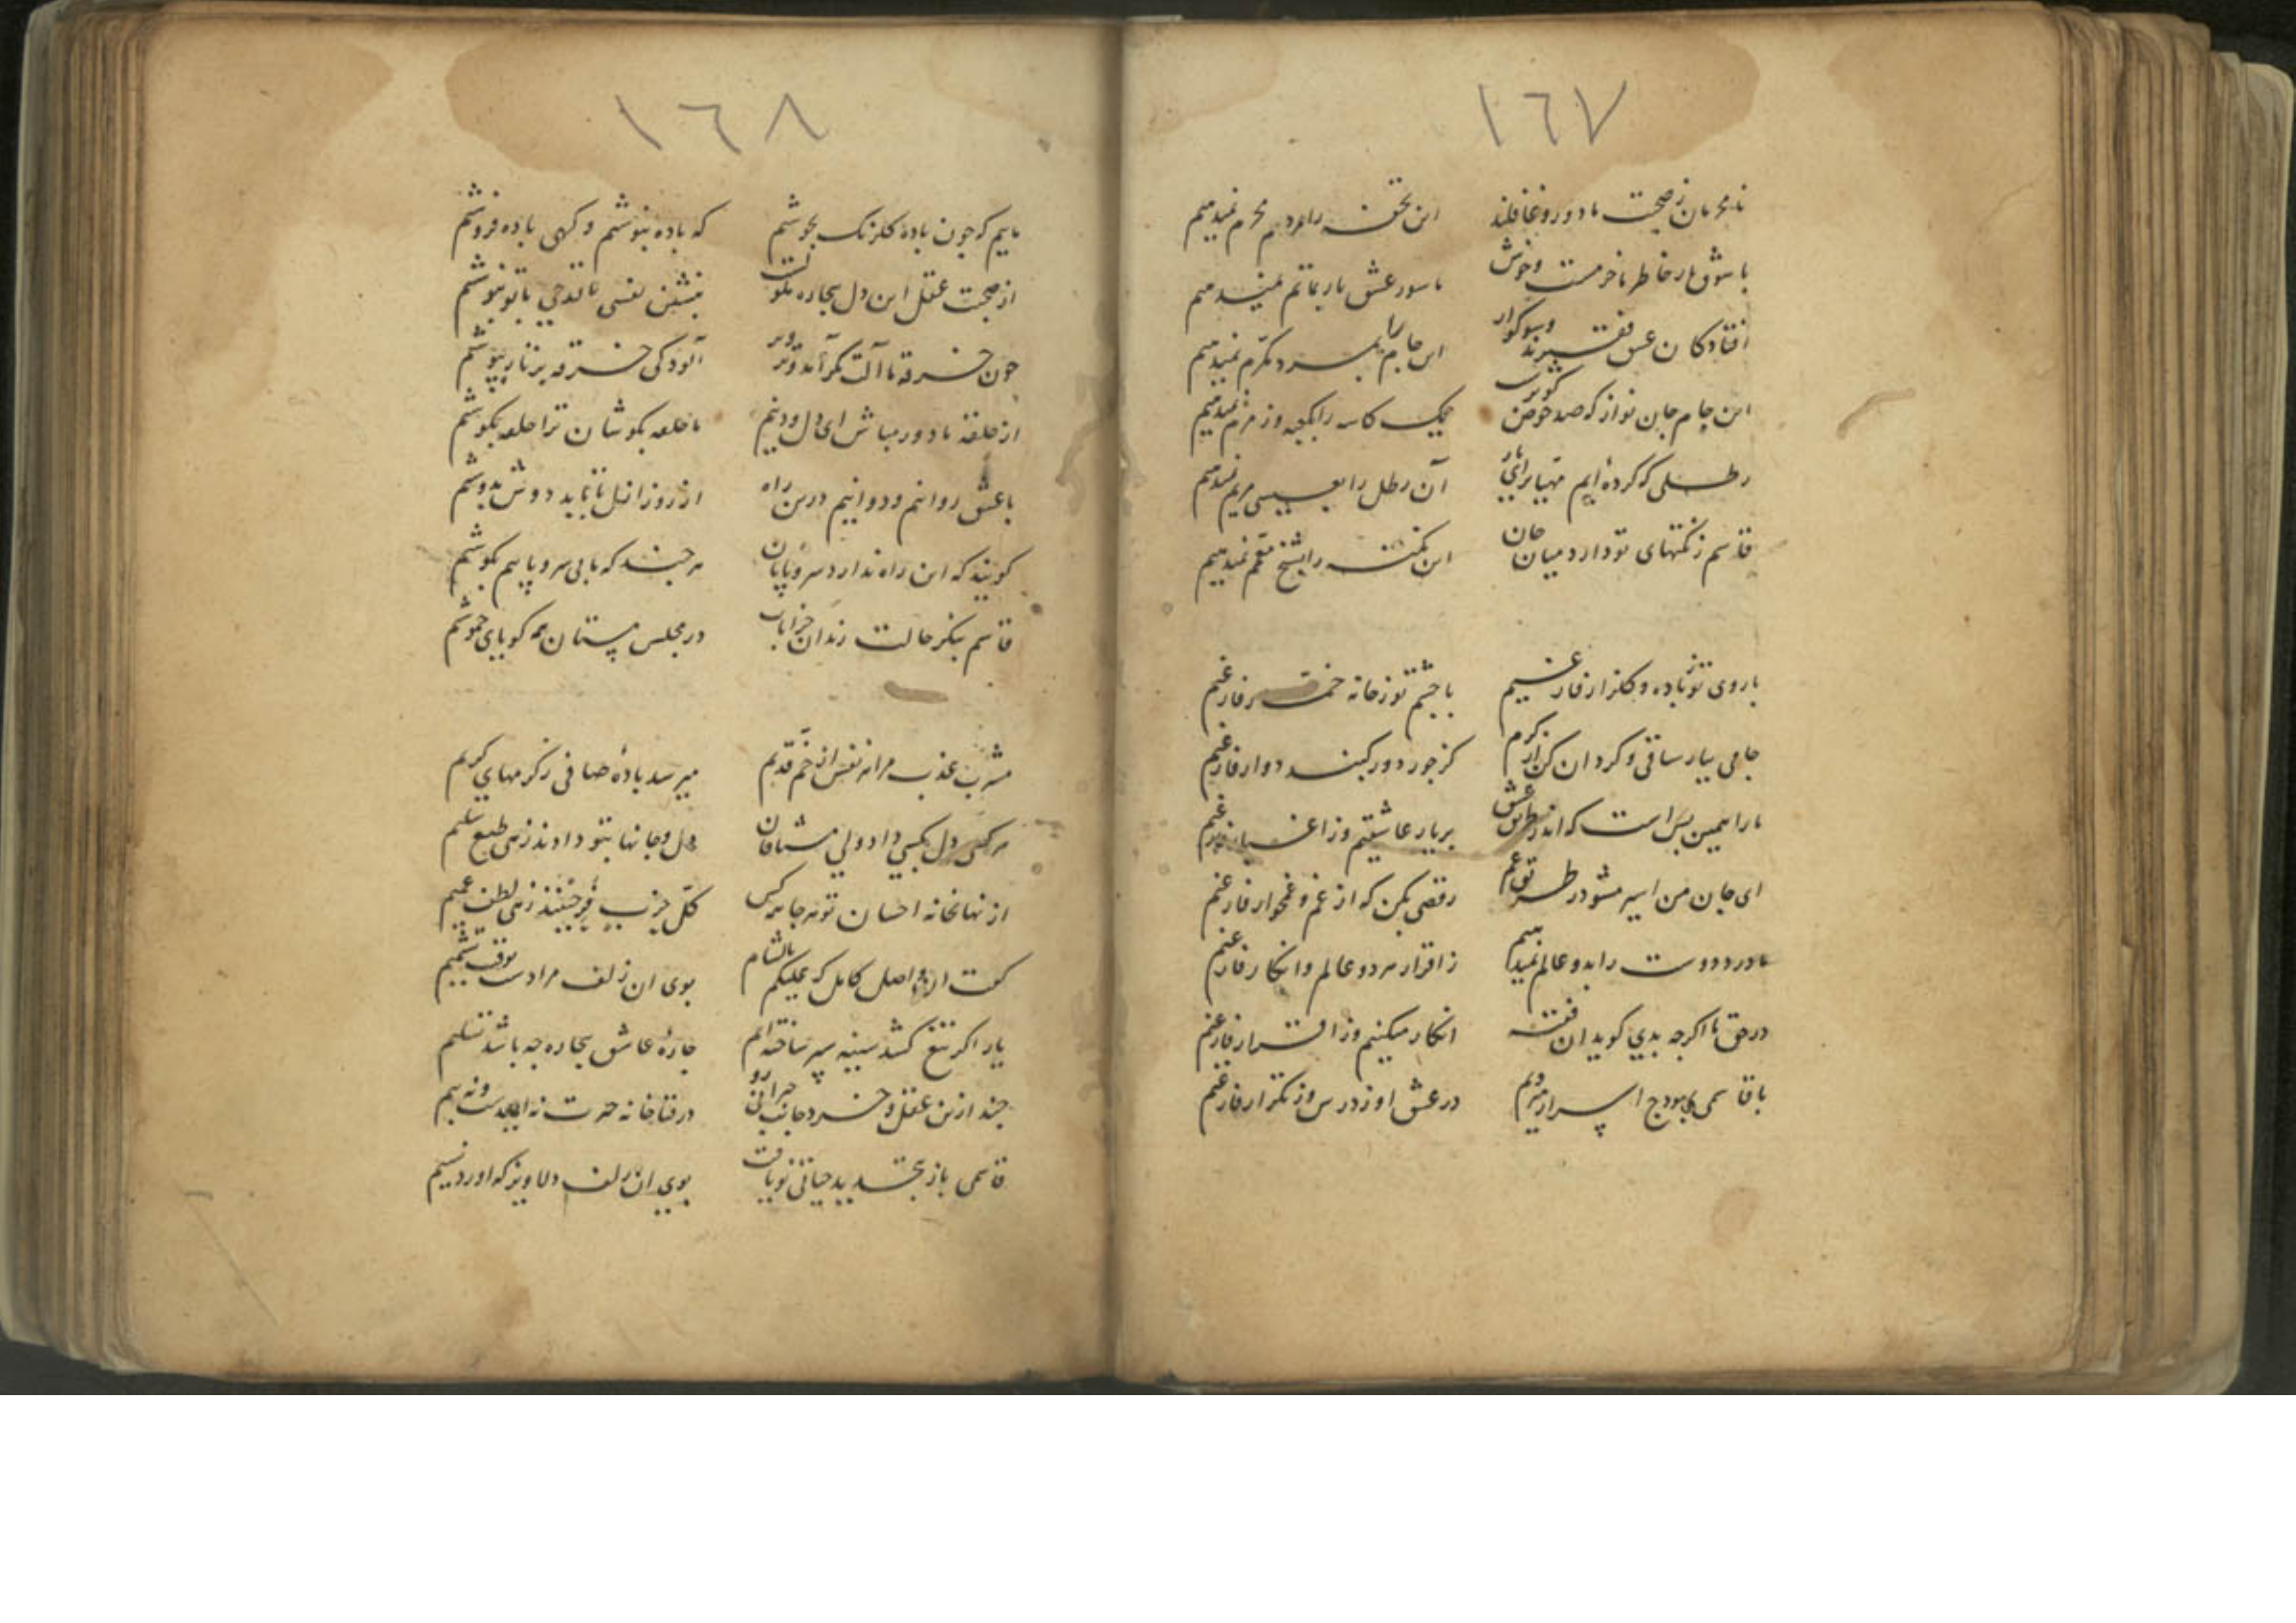 ١٦٧
نامحرمان ز صحبت ما دور و غافلند این تحفه را بمردم محرم نمیدهیم
با شوق یار خاطر ما خرمست و خوش ما سور عشق یار بماتم نمیدهیم
افتادگان عشق فقیرند و سوکوار این جام را بمرد مکرم نمیدهیم
این جام جان نواز که صد حوض کوثرست یک کاسه را بکعبه و زمزم نمیدهیم
رطلی که کرده‌ایم مهیا برای یار آن رطل را بعیسی مریم نمیدهیم
قاسم ز نکتهای تو دارد میان جان این نکته را بشیخ معمم نمیدهیم
با روی تو ز باده و کلزار فارغیم با چشم تو ز خانه خمار فارغیم
جامی بیار ساقی و کردان کن از کرم کز جور دور کنبد دوار فارغیم
ما را همین بس است که اندر طریق عشق بر یار عاشقیم و ز اغیار فارغیم
ای جان من اسیر مشو در طریق غم رقصی بکن که از غم و غمخوار فارغیم
ما درد دوست را بدو عالم نمیدهیم ز اقرار هر دو عالم و انکار فارغیم
در حق ما اکرچه بدی کوید ان فقیه انکار میکنیم و ز اقرار فارغیم
با قاسمی باوج اسرار میرویم در عشق او ز درس و ز تکرار فارغیم
١٦٨
ماییم که چون باده کلرنک بجوشیم که باده بنوشیم و کهی باده فروشیم
از صحبت عقل این دل بیچاره ملولست بنشین نفسی تا قدحی با تو بنوشیم
چون خرقه ما آلت مکر آمد و تزویر آلودکی خرقه بزنار بپوشیم
از حلقه ما دور مباش ای دل و دینم ما حلقه بکوشان ترا حلقه بکوشیم
با عشق روانیم و دوانیم درین راه از روز ازل تا بابد دوش بدوشیم
کویند که این راه ندارد سر و پایان هر چند که بی سر و پاییم بکوشیم
قاسم بنکر حالت رندان خرابات در مجلس مستان همه کویای خموشیم
مشرب عذب مرا هر نفس از خم قدیم میرسد باده صافی ز کرمهای کریم
هر کسی دل بکسی داد ولی مشتاقان دل و جانها بتو دادند زهی طبع سلیم
از نهانخانه احسان تو هر جا هر کس کل حزب فرحینند زهی لطف عمیم
کفت ان واصل کامل که علیکم بالشام بوی ان زلف مرادست توقف نکنیم
یار اکر تیغ کشد سینه سپر ساخته‌ایم چاره عاشق بیچاره چه باشد تسلیم
چند ازین عقل و خرد جانب حیرانی رو در فناخانه حیرت نه امیدست و نه بیم
قاسمی باز بتجدید حیاتی نو یافت بوی ان زلف دلاویز که اورد نسیم